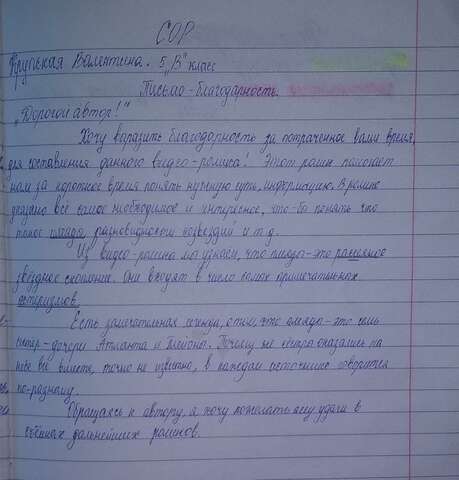 СОР
Крупская Валентина. 5 "В" класс
Письмо-благодарность.
"Дорогой автор!"
Хочу выразить благодарность за потраченное вами время,
для составления данного видео-ролика! Этот ролик помогает
нам за короткое время понять нужную суть, информацию. В ролике
указано всё самое необходимое и интересное, что-бы понять что
такое плеяды, разновидности созвездий и т.д.
Из видео-ролика мы узнаем, что плеяды-это рассеяное
звёздное скопление. Они входят в число самых примечательных
астеризмов.
Есть замечательная легенда, о том, что плеяды-это семь
сестер-дочери Атланта и Плейоны. Почему же сёстры оказались на
небе все вместе, точно не известно, в каждом источнике говорится
по-разному.
Обращаясь к автору, я хочу пожелать ему удачи в
съёмках дальнейших роликов.